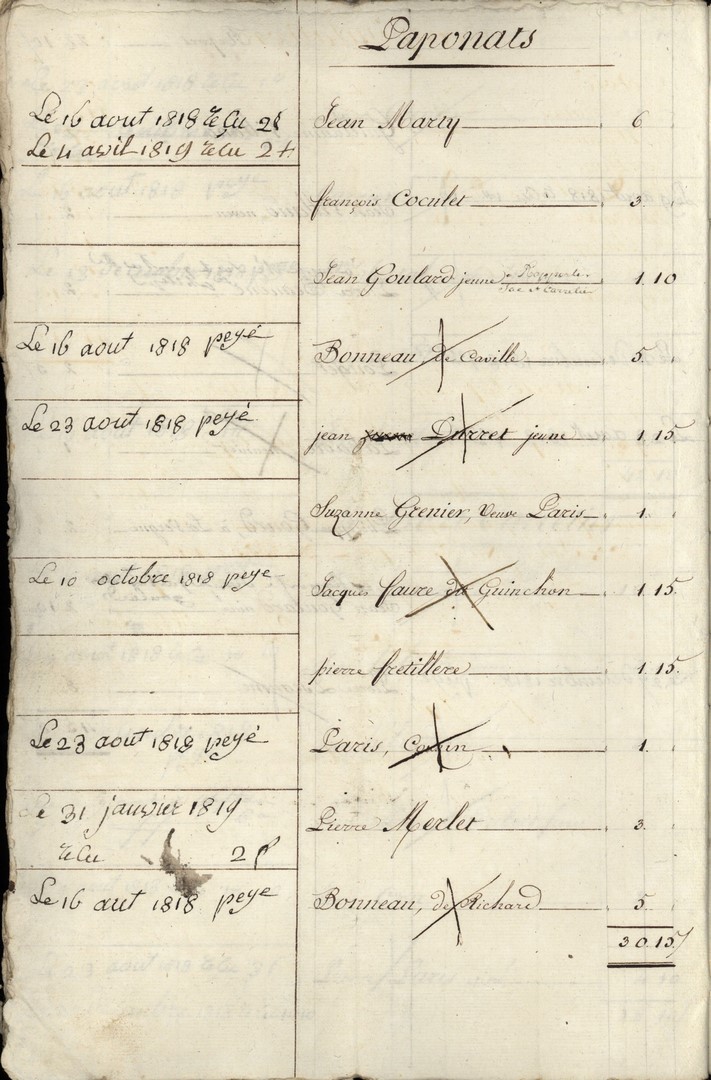 Paponats
Le 16 aout 1818 reçu 2f Jean Marty 6
Le 11 avril 1819 reçu 2f
françois Coculet 3.
Jean Goulard jeune 1. 10
Le 16 aout 1818 peyé Bonneau, de Caville 5.
Le 23 aout 1818 peyé jean Durret jeune 1. 15
Suzanne Grenier, Veuve Paris 1.
Le 10 octobre 1818 peye Jacques faure dit Guinchon 1. 15.
pierre fretillere 1. 15.
Le 23 aout 1818 peyé Paris, 1.
Le 31 janvier 1819 Pierre Merlet 3.
reçu 2f
Le 16 aut 1818 peye Bonneau, de Richard 5.
30. 15